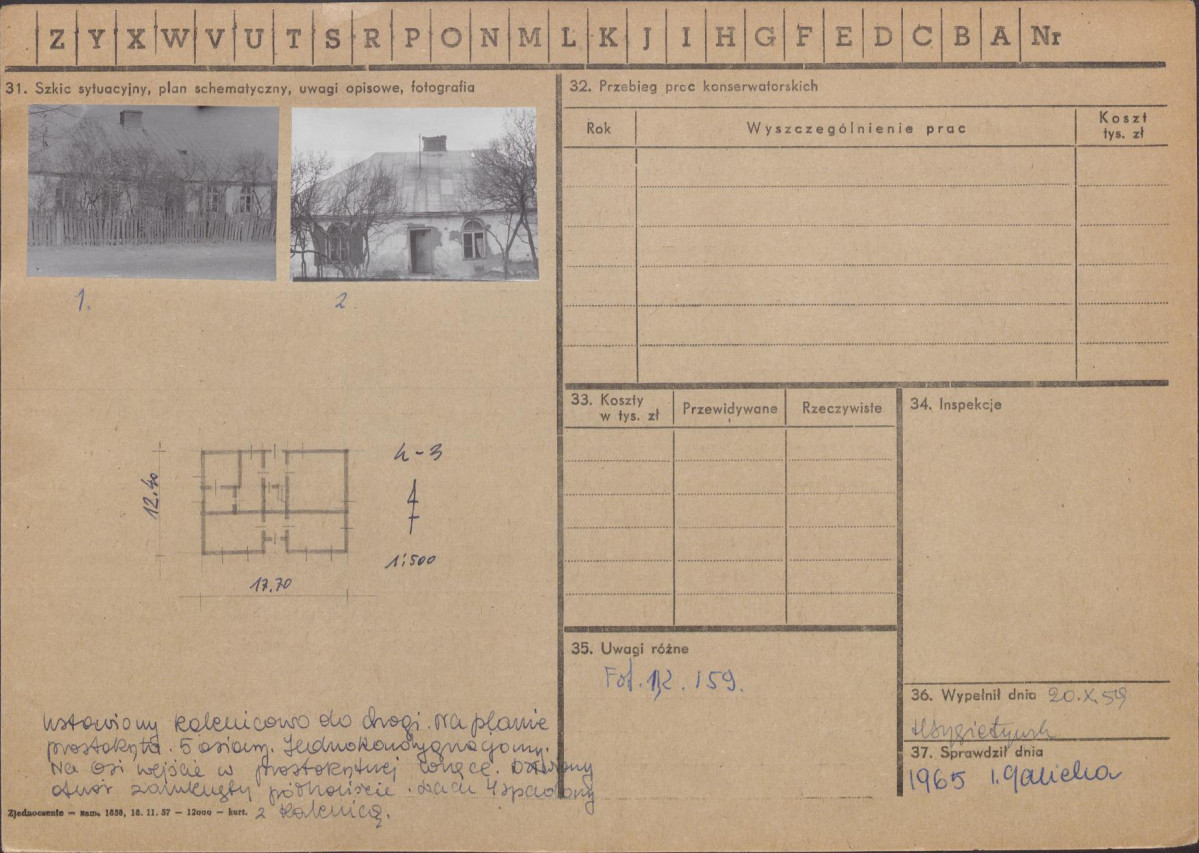 Z Y X W V U T S R P O N M L K J I H G F E D C B A Nr
31. Szkic sytuacyjny, plan schematyczny, uwagi opisowe, fotografia
1.
2.
h-3
12.40
1:500
17,70
Ustawiony kalenicowo do drogi. Na planie
prostokąta. 5 osiowy. Jednokondygnacyjny.
Na osi wejście w prostokątnej wnęce.
otwór zamknięty półkoliście. Dach 4 spadowy
z kalenicą.
Zjednoczenie — zam. 1656, 18. 11. 57 — 12000 — kart.
32. Przebieg prac konserwatorskich
Rok
Wyszczególnienie prac
Koszt
tys. zł
33. Koszty
w tys. zł
Przewidywane
Rzeczywiste
34. Inspekcje
35. Uwagi różne
Fot. 1,2. 159.
36. Wypełnił dnia 20.X.59
37. Sprawdził dnia
1965 I. Galicka